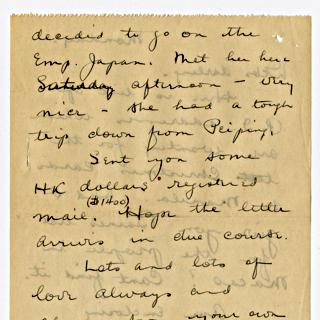 decided to go on the
Emp. Japan. Met her here
Saturday afternoon - very
nice - she had a tough
trip down from Peiping.
Sent you some
HK dollars registered
($1400)
mail. Hope the letter
arrives in due course.
Lots and lots of
love always and
your own